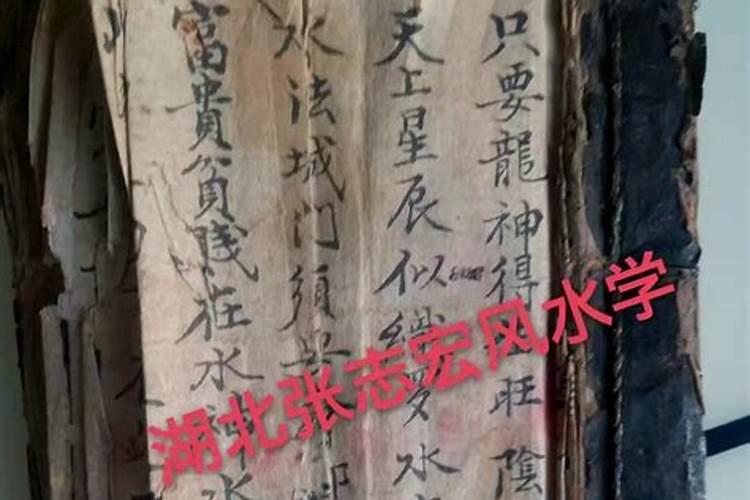 只要龍神得旺 陰
天上星辰似織 水
水法城門須
富貴貧賤在水神 水
湖北张志宏风水学